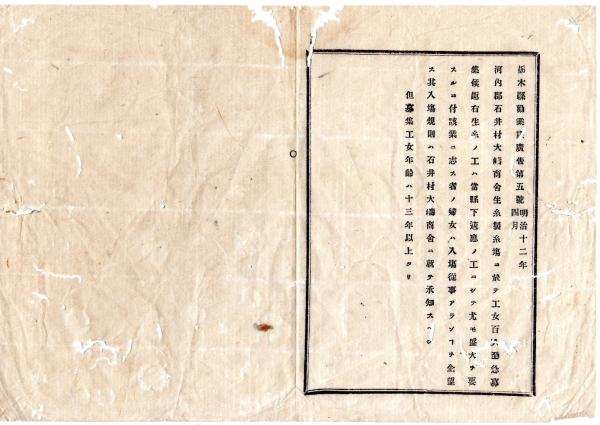 栃木縣勸業課廣告第五號 明治十二年四月
河内郡石井村大嶹商舍生糸製糸塲ニ於テ工女百 至急募
集候處右生糸ノ工ハ當縣下適應ノ工ニシテ尤モ盛大ヲ要
スルニ付該業ニ志ス者ノ婦女ハ入塲從事アランヿヲ企望
ス其入塲規則ハ石井村大嶹商舍ニ就テ承知スヘシ
但募集工女年齡ハ十三年以上タリ